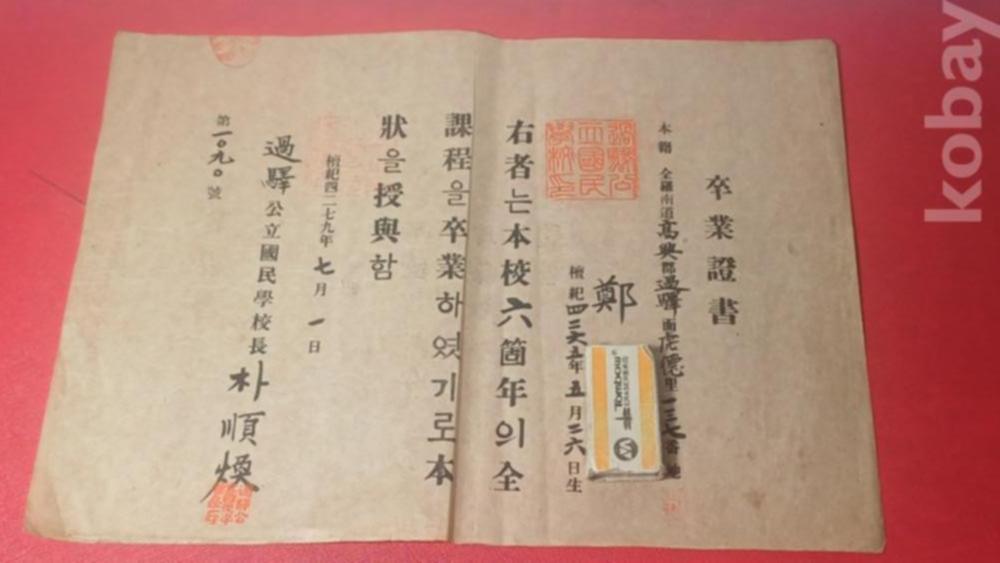 卒業證書
本籍 全羅南道高興郡過驛面虎德里一三七番地
鄭
檀紀四二六五年五月二六日生
右者는本校六箇年의全
課程을卒業하엿기로本
狀을授與함
檀紀四二七九年七月一日
過驛公立國民學校長 朴順煥
第一〇九〇號
過驛公
立國民
學校印
kobay